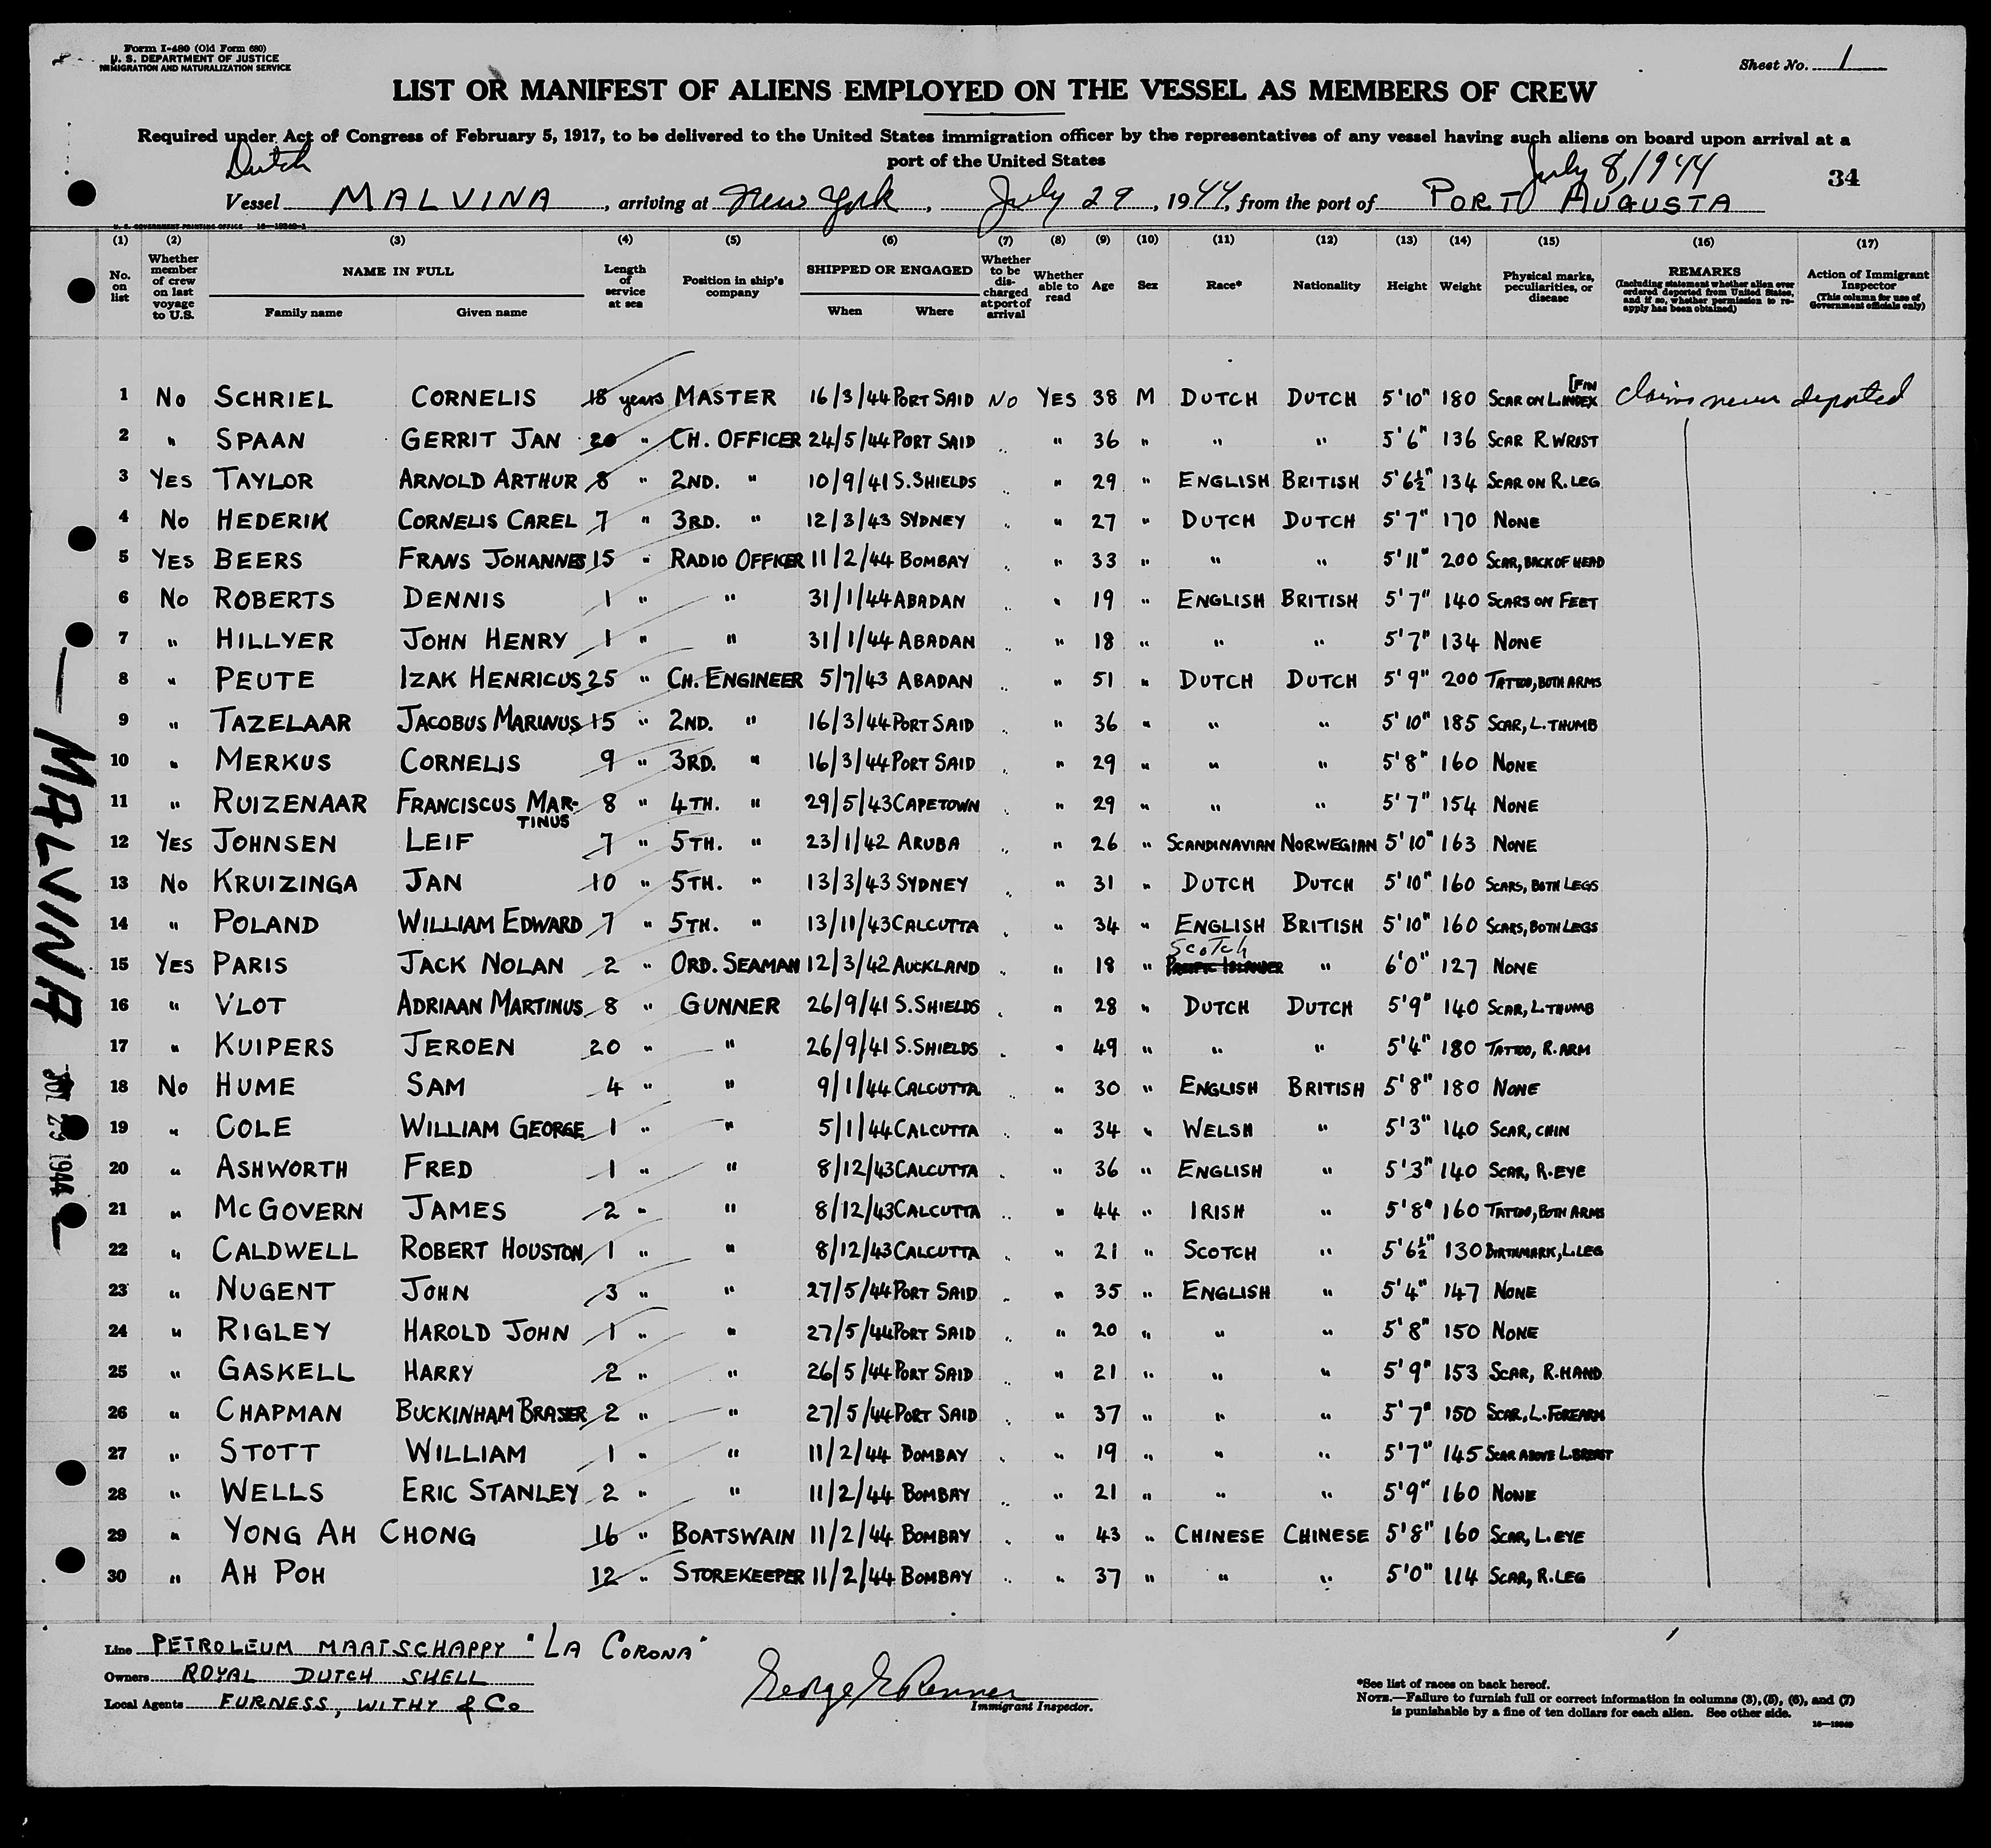 Form I-480 (Old Form 680)
U. S. DEPARTMENT OF JUSTICE
IMMIGRATION AND NATURALIZATION SERVICE
Sheet No. 1
LIST OR MANIFEST OF ALIENS EMPLOYED ON THE VESSEL AS MEMBERS OF CREW
Required under Act of Congress of February 5, 1917, to be delivered to the United States immigration officer by the representatives of any vessel having such aliens on board upon arrival at a
port of the United States
Dutch
July 8, 1944
34
Vessel MALVINA, arriving at New York, July 29, 1944, from the port of PORT AUGUSTA
U. S. GOVERNMENT PRINTING OFFICE
(1) (2) (3) (4) (5) (6) (7) (8) (9) (10) (11) (12) (13) (14) (15) (16) (17)
No. on list
Whether member of crew on last voyage to U.S.
NAME IN FULL
Family name
Given name
Length of service at sea
Position in ship's company
SHIPPED OR ENGAGED
When
Where
Whether to be discharged at port of arrival
Whether able to read
Age
Sex
Race*
Nationality
Height
Weight
Physical marks, peculiarities, or disease
REMARKS
(Including statement whether alien ever ordered deported from United States, and if so, whether permission to re-apply has been obtained)
Action of Immigrant Inspector
(This column for use of Government officials only)
1 No SCHRIEL CORNELIS 18 years MASTER 16/3/44 PORT SAID NO YES 38 M DUTCH DUTCH 5'10" 180 SCAR ON L. INDEX [FIN claims never deported
2 " SPAAN GERRIT JAN 20 " CH. OFFICER 24/5/44 PORT SAID " " 36 " " " 5'6" 136 SCAR R. WRIST
3 YES TAYLOR ARNOLD ARTHUR 8 " 2ND. " 10/9/41 S. SHIELDS " " 29 " ENGLISH BRITISH 5'6½" 134 SCAR ON R. LEG
4 NO HEDERIK CORNELIS CAREL 7 " 3RD. " 12/3/43 SYDNEY " " 27 " DUTCH DUTCH 5'7" 170 NONE
5 YES BEERS FRANS JOHANNES 15 " RADIO OFFICER 11/2/44 BOMBAY " " 33 " " " 5'11" 200 SCAR, BACK OF HEAD
6 NO ROBERTS DENNIS 1 " " 31/1/44 ABADAN " " 19 " ENGLISH BRITISH 5'7" 140 SCARS ON FEET
7 " HILLYER JOHN HENRY 1 " " 31/1/44 ABADAN " " 18 " " " 5'7" 134 NONE
8 " PEUTE IZAK HENRICUS 25 " CH. ENGINEER 5/7/43 ABADAN " " 51 " DUTCH DUTCH 5'9" 200 TATTOO, BOTH ARMS
9 " TAZELAAR JACOBUS MARINUS 15 " 2ND. " 16/3/44 PORT SAID " " 36 " " " 5'10" 185 SCAR, L. THUMB
10 " MERKUS CORNELIS 9 " 3RD. " 16/3/44 PORT SAID " " 29 " " " 5'8" 160 NONE
11 " RUIZENAAR FRANCISCUS MAR-TINUS 8 " 4TH. " 29/5/43 CAPETOWN " " 29 " " " 5'7" 154 NONE
12 YES JOHNSEN LEIF 7 " 5TH. " 23/1/42 ARUBA " " 26 " SCANDINAVIAN NORWEGIAN 5'10" 163 NONE
13 NO KRUIZINGA JAN 10 " 5TH. " 13/3/43 SYDNEY " " 31 " DUTCH DUTCH 5'10" 160 SCARS, BOTH LEGS
14 " POLAND WILLIAM EDWARD 7 " 5TH. " 13/11/43 CALCUTTA " " 34 " ENGLISH BRITISH 5'10" 160 SCARS, BOTH LEGS
15 YES PARIS JACK NOLAN 2 " ORD. SEAMAN 12/3/42 AUCKLAND " " 18 " Scotch PACIFIC ISLANDER " 6'0" 127 NONE
16 " VLOT ADRIAAN MARTINUS 8 " GUNNER 26/9/41 S. SHIELDS " " 28 " DUTCH DUTCH 5'9" 140 SCAR, L. THUMB
17 " KUIPERS JEROEN 20 " " 26/9/41 S. SHIELDS " " 49 " " " 5'4" 180 TATTOO, R. ARM
18 NO HUME SAM 4 " " 9/1/44 CALCUTTA " " 30 " ENGLISH BRITISH 5'8" 180 NONE
19 " COLE WILLIAM GEORGE 1 " " 5/1/44 CALCUTTA " " 34 " WELSH " 5'3" 140 SCAR, CHIN
20 " ASHWORTH FRED 1 " " 8/12/43 CALCUTTA " " 36 " ENGLISH " 5'3" 140 SCAR, R. EYE
21 " MCGOVERN JAMES 2 " " 8/12/43 CALCUTTA " " 44 " IRISH " 5'8" 160 TATTOO, BOTH ARMS
22 " CALDWELL ROBERT HOUSTON 1 " " 8/12/43 CALCUTTA " " 21 " SCOTCH " 5'6½" 130 BIRTHMARK, L. LEG
23 " NUGENT JOHN 3 " " 27/5/44 PORT SAID " " 35 " ENGLISH " 5'4" 147 NONE
24 " RIGLEY HAROLD JOHN 1 " " 27/5/44 PORT SAID " " 20 " " " 5'8" 150 NONE
25 " GASKELL HARRY 2 " " 26/5/44 PORT SAID " " 21 " " " 5'9" 153 SCAR, R. HAND
26 " CHAPMAN BUCKINHAM BRASER 2 " " 27/5/44 PORT SAID " " 37 " " " 5'7" 150 SCAR, L. FOREARM
27 " STOTT WILLIAM 1 " " 11/2/44 BOMBAY " " 19 " " " 5'7" 145 SCAR ABOVE L. BREAST
28 " WELLS ERIC STANLEY 2 " " 11/2/44 BOMBAY " " 21 " " " 5'9" 160 NONE
29 " YONG AH CHONG 16 " BOATSWAIN 11/2/44 BOMBAY " " 43 " CHINESE CHINESE 5'8" 160 SCAR, L. EYE
30 " AH POH 12 " STOREKEEPER 11/2/44 BOMBAY " " 37 " " " 5'0" 114 SCAR, R. LEG
MALVINA
1944
Line PETROLEUM MAATSCHAPPY "LA CORONA"
Owners ROYAL DUTCH SHELL
Local Agents FURNESS, WITHY & Co
George E Renner
Immigrant Inspector.
*See list of races on back hereof.
NOTE.—Failure to furnish full or correct information in columns (3), (5), (6), and (7)
is punishable by a fine of ten dollars for each alien. See other side.